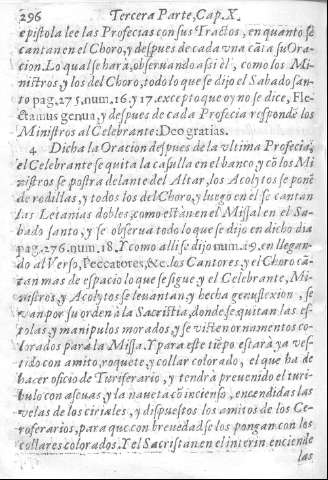 296 Tercera Parte, Cap. X.
epistola lee las Profecias con sus Tractos, en quanto se
cantan en el Choro, y despues de cada vna cãta su Ora-
cion. Lo qual se hará, observando assi el, como los Mi-
nistros, y los del Choro, todo lo que se dijo el Sabado san-
to pag. 275, num. 16. y 17. excepto que oy no se dice, Fle-
ctamus genua, y despues de cada Profecia respondẽ los
Ministros al Celebrante: Deo gratias.
4 Dicha la Oracion despues de la vltima Profecia,
el Celebrante se quita la casulla en el banco, y cõ los Mi
nistros se postra delante del Altar, los Acolytos se ponẽ
de rodillas, y todos los del Choro, y luego en el se cantan
las Letanias dobles, como estàn en el Missal en el Sa-
bado santo, y se observa todo lo que se dijo en dicho dia
pag. 276. num. 18. Y como alli se dijo num. 19. en llegan-
do al Verso, Peccatores, &c. los Cantores, y el Choro cã-
tan mas de espacio lo que se sigue y el Celebrante, Mi-
nistros, y Acolytos se levantan y hecha genuflexion, se
van por su orden à la Sacristia, donde se quitan las es-
tolas, y manipulos morados, y se visten ornamentos co-
lorados para la Missa. Y para este tiẽpo estará ya ves-
tido con amito, roquete, y collar colorado, el que ha de
hacer oficio de Turiferario, y tendrà prevenido el turi-
bulo con ascuas, y la naveta cõ incienso, encendidas las
velas de los ciriales, y dispuestos los amitos de los Ce-
roferarios, para que con brevedad se los pongan con los
collares colorados. Y el Sacristan en el interin enciende
las